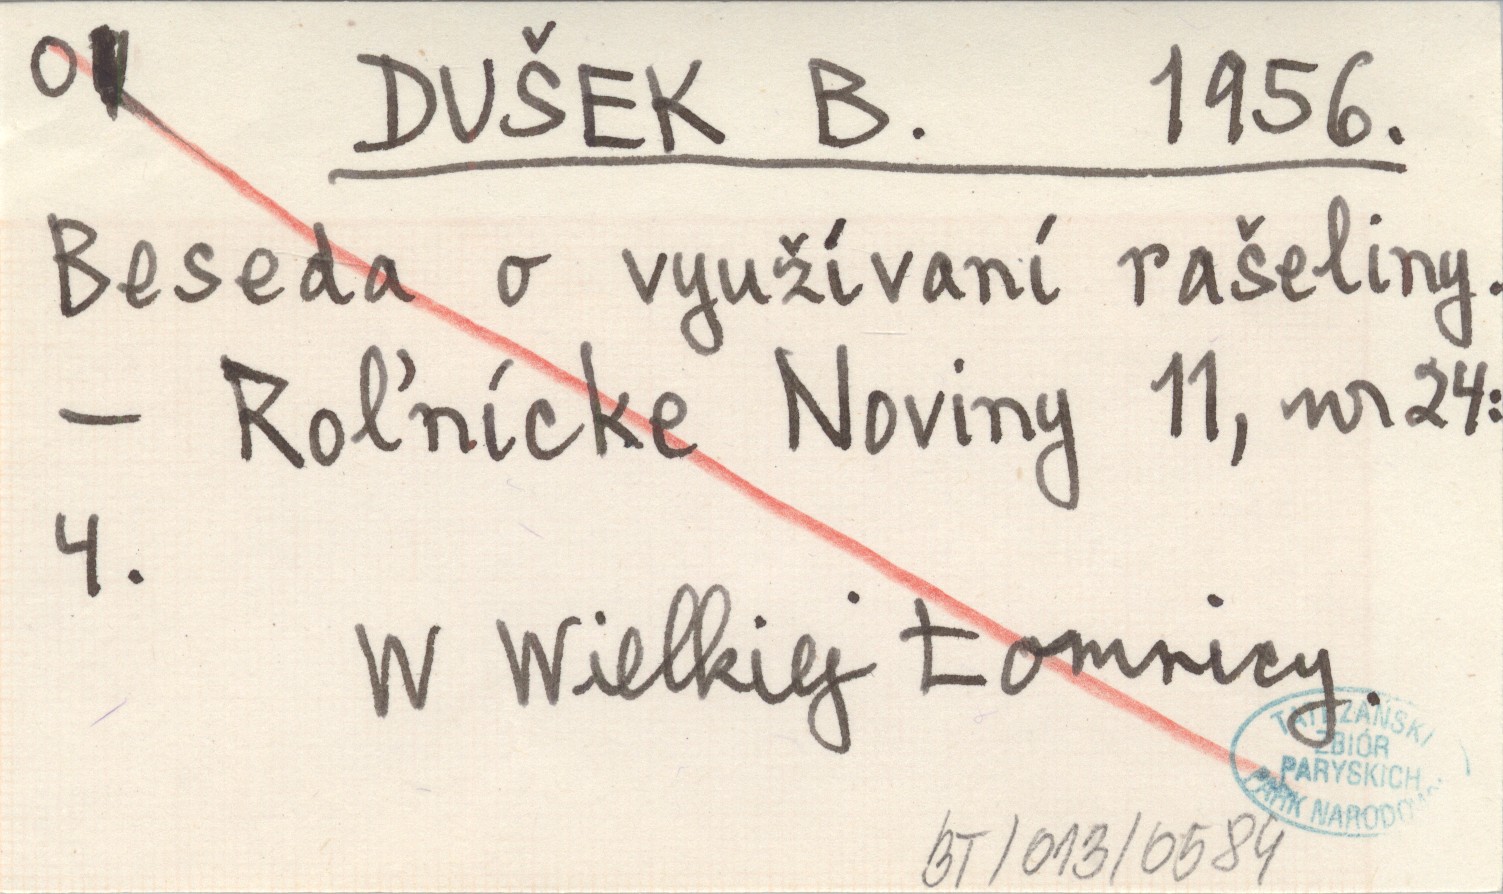 O
DUŠEK B. 1956.
Beseda o využívaní rašeliny.
— Roľnícke Noviny 11, nr 24:
4.
W Wielkiej Łomnicy.
TATRZAŃSKI
ZBIÓR
PARYSKICH
PARK NARODOWY
BT/013/0584